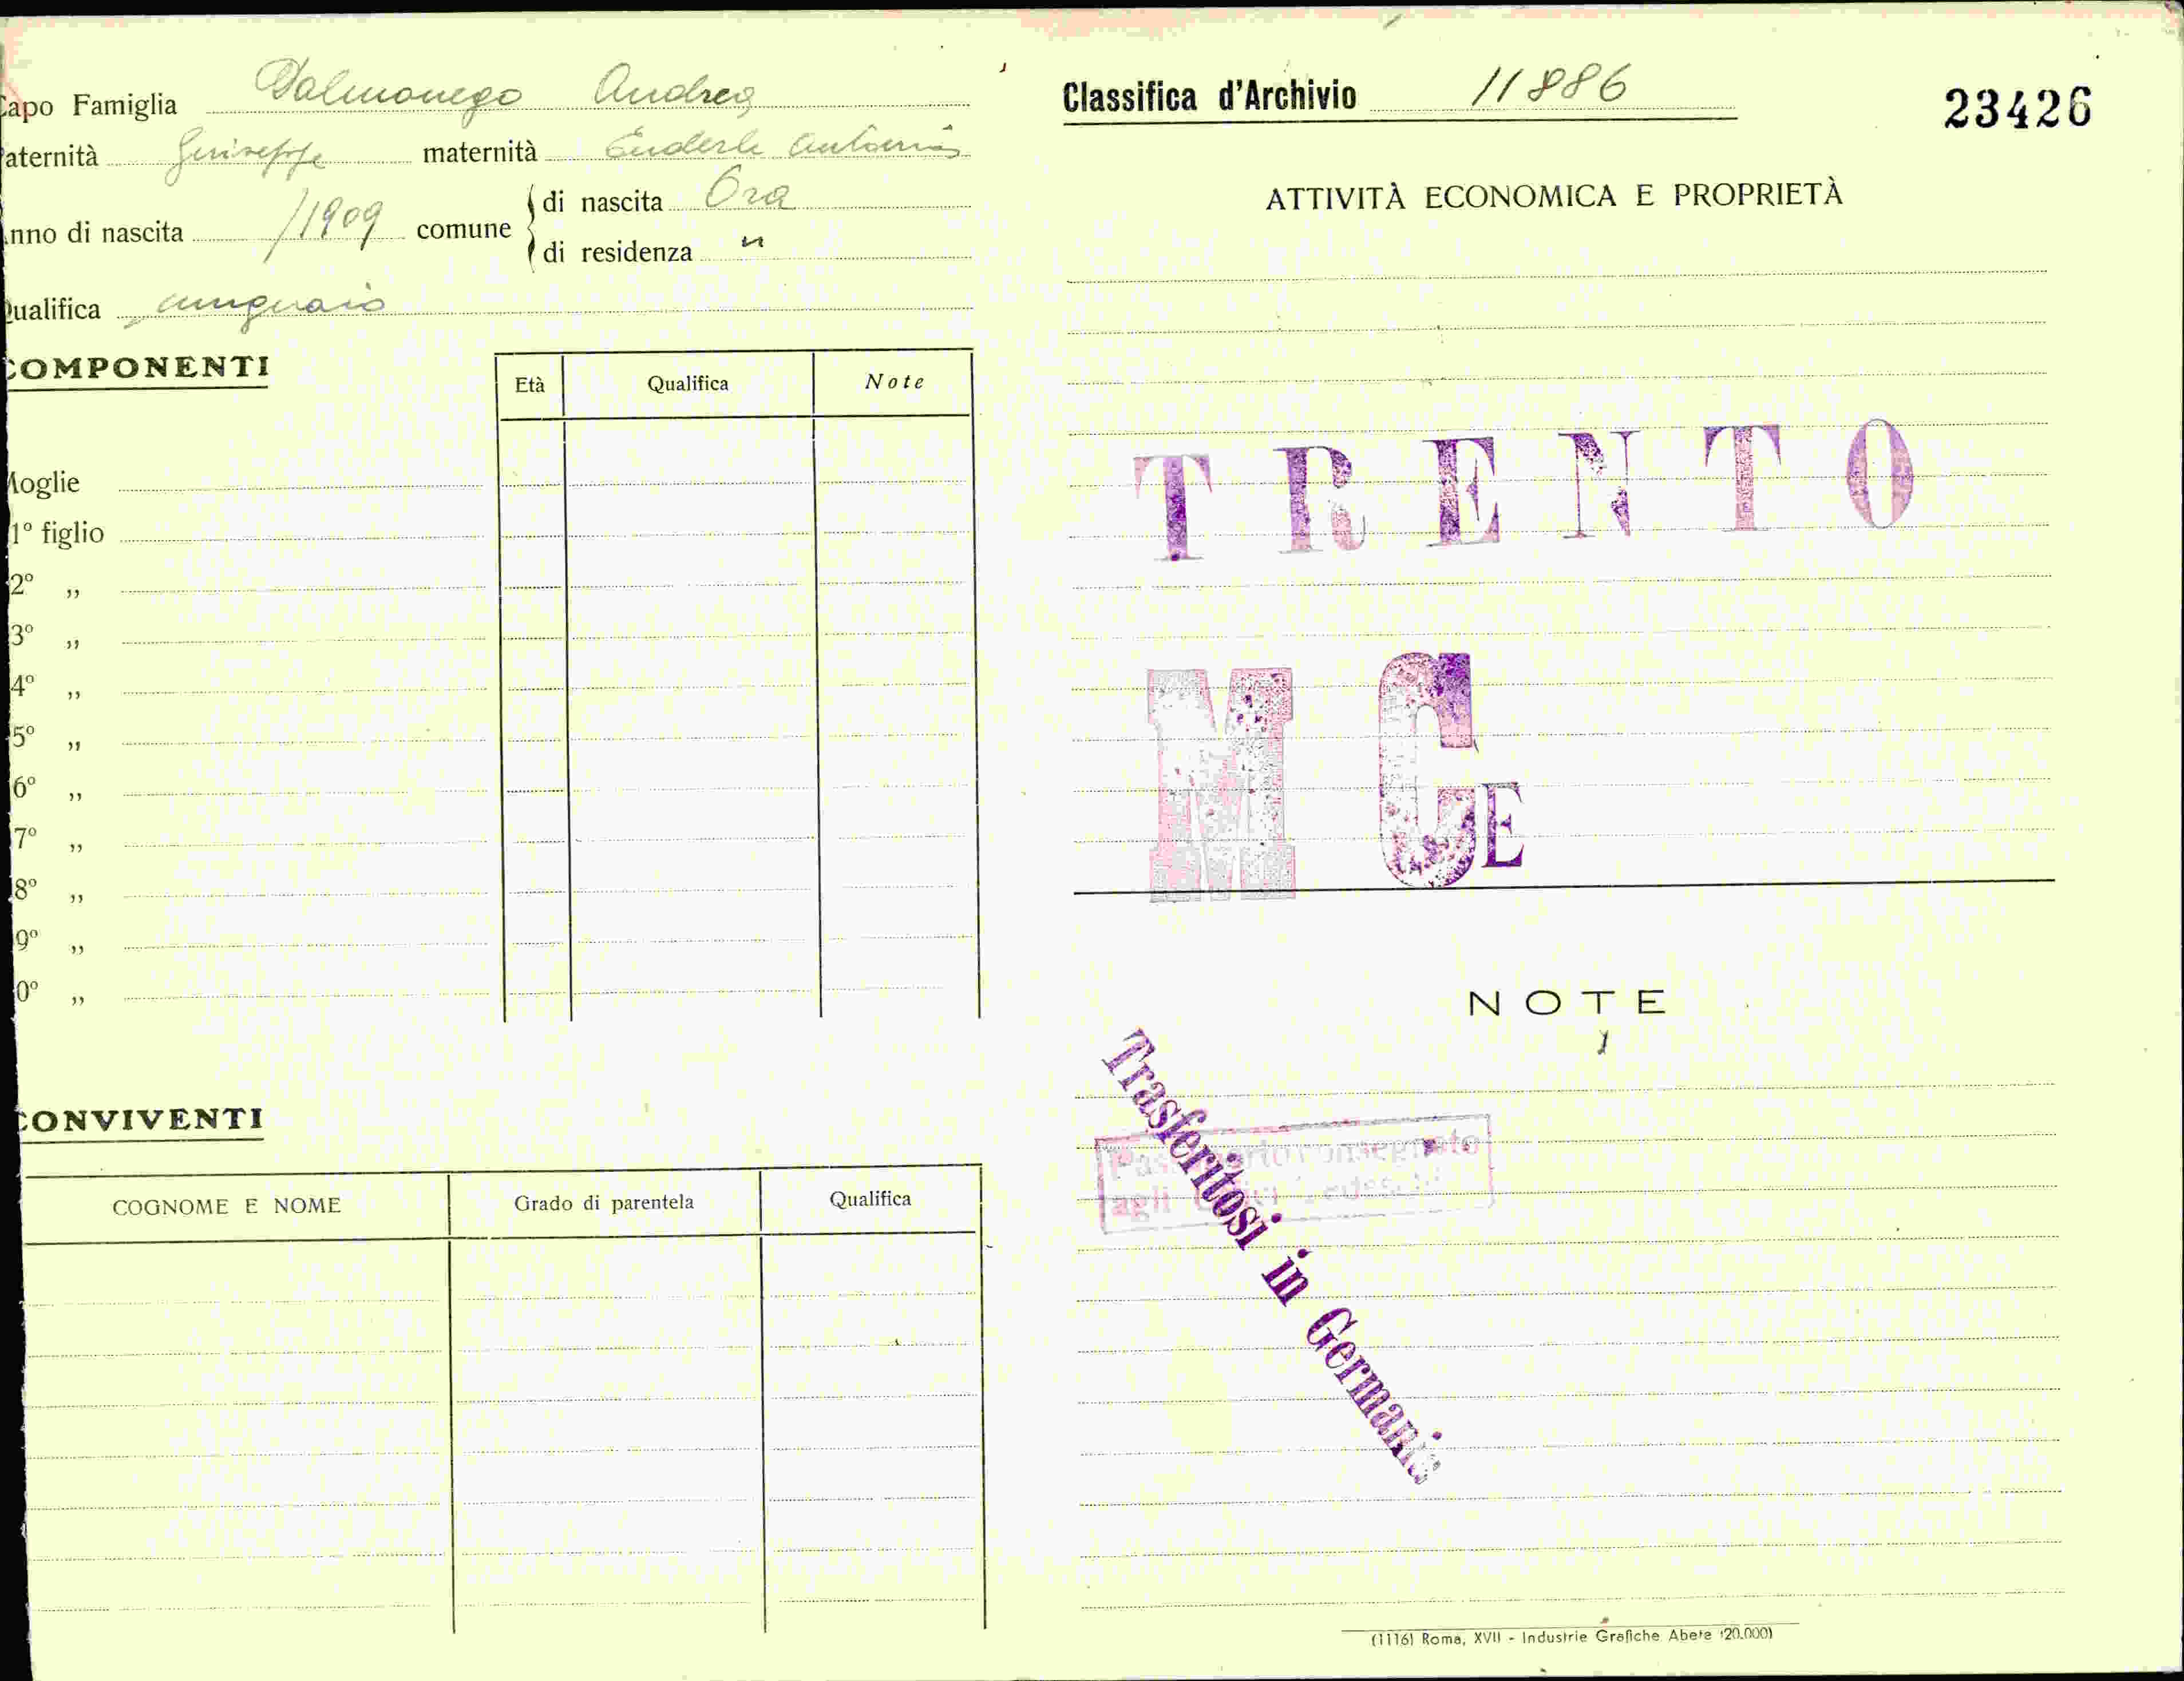 Capo Famiglia Dalmonego Andrea
Paternità Giuseppe maternità Enderle Antonia
Anno di nascita /1909 comune di nascita Ora
di residenza "
Qualifica mugnaio
COMPONENTI
Età Qualifica Note
Moglie
1° figlio
2° „
3° „
4° „
5° „
6° „
7° „
8° „
9° „
0° „
CONVIVENTI
COGNOME E NOME Grado di parentela Qualifica
Classifica d'Archivio 11886
23426
ATTIVITÀ ECONOMICA E PROPRIETÀ
TRENTO
M C E
NOTE
1
Passaporto consegnato
agli Uffici Tedeschi
Trasferitosi in Germania
(1116) Roma, XVII - Industrie Grafiche Abete (20.000)